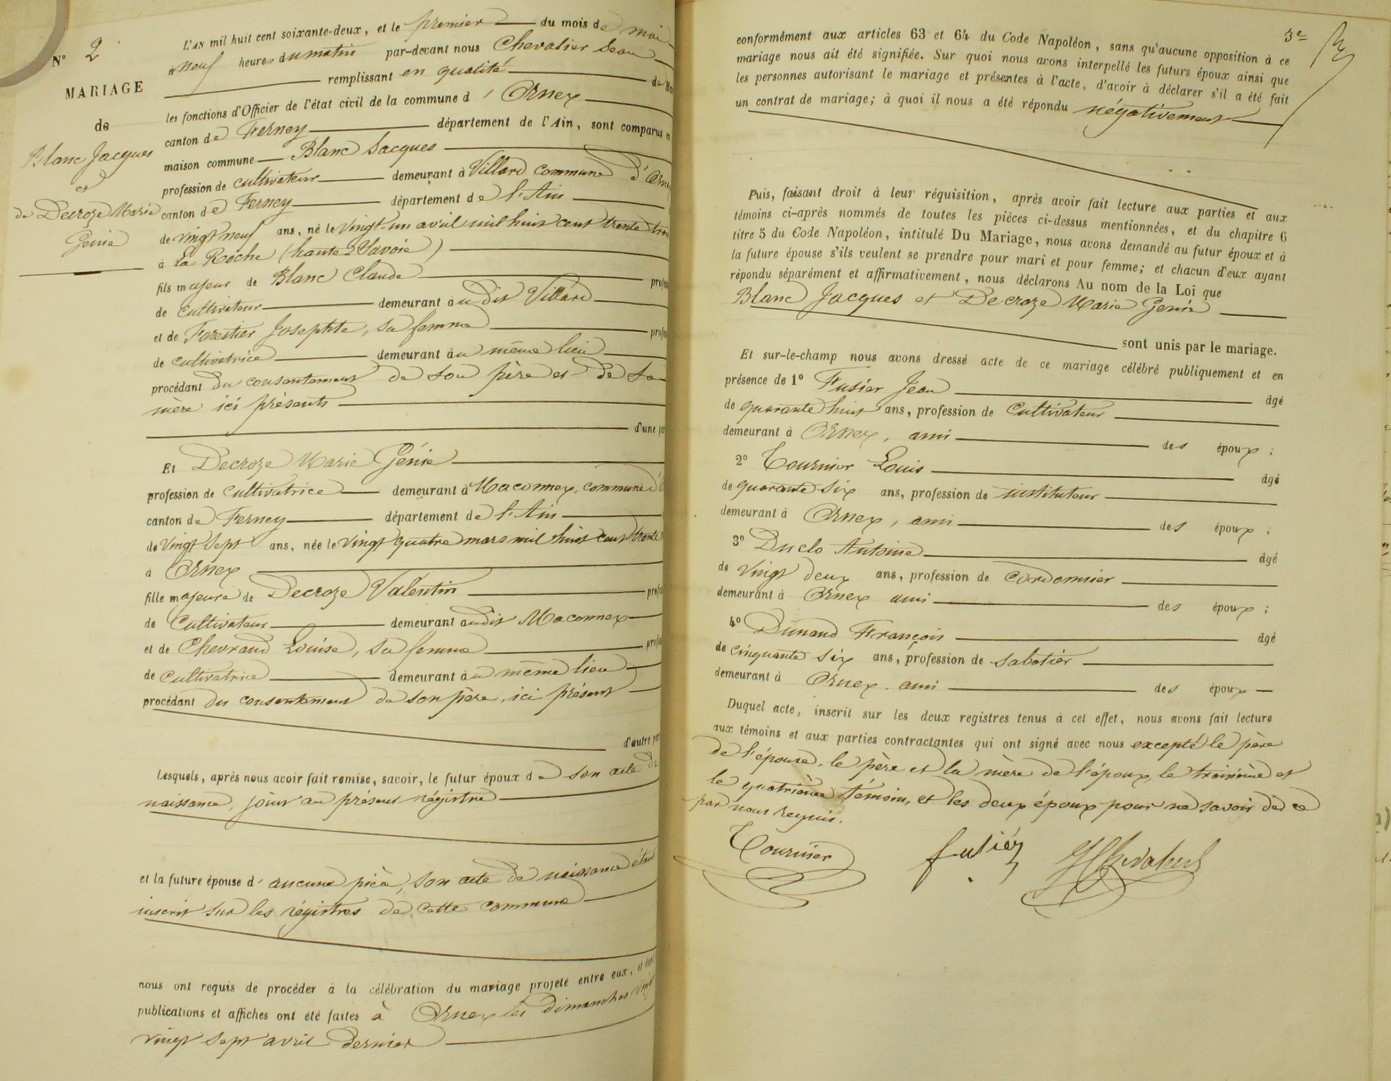 N° 2
MARIAGE
de
Blanc Jacques
et
de Decroze Marie
Génie
L'AN mil huit cent soixante-deux, et le premier du mois de mai
à neuf heures du matin par-devant nous Chevalier Jean
remplissant en qualité de
les fonctions d'Officier de l'état civil de la commune d' Ornex
canton de Ferney département de l'Ain, sont comparus en
maison commune Blanc Jacques
profession de cultivateur demeurant à Villard commune d'Ornex
canton de Ferney département de l'Ain
de vingt neuf ans, né le vingt un avril mil huit cent trente trois
à La Roche (haute Savoie)
fils majeur de Blanc Claude
de cultivateur demeurant audit Villard
et de Forestier Josephte, sa femme
de cultivatrice demeurant au même lieu
procédant du consentement de son père et de sa
mère ici présents
d'une part
Et Decroze Marie Génie
profession de cultivatrice demeurant à Maconnex, commune d'
canton de Ferney département de l'Ain
de vingt sept ans, née le vingt quatre mars mil huit cent trente
à Ornex
fille majeure de Decroze Valentin
de Cultivateur demeurant audit Maconnex
et de Chevrand Louise, sa femme
de Cultivatrice demeurant au même lieu
procédant du consentement de son père, ici présent
d'autre part
Lesquels, après nous avoir fait remise, savoir, le futur époux de son acte de
naissance, joint au présent régistre
et la future épouse d' aucune pièce, son acte de naissance étant
inscrit sur les régistres de cette commune
nous ont requis de procéder à la célébration du mariage projeté entre eux, et dont
publications et affiches ont été faites à Ornex les dimanches vingt
vingt sept avril dernier
3e
conformément aux articles 63 et 64 du Code Napoléon, sans qu'aucune opposition à ce
mariage nous ait été signifiée. Sur quoi nous avons interpellé les futurs époux ainsi que
les personnes autorisant le mariage et présentes à l'acte, d'avoir à déclarer s'il a été fait
un contrat de mariage; à quoi il nous a été répondu négativement
Puis, faisant droit à leur réquisition, après avoir fait lecture aux parties et aux
témoins ci-après nommés de toutes les pièces ci-dessus mentionnées, et du chapitre 6
titre 5 du Code Napoléon, intitulé Du Mariage, nous avons demandé au futur époux et à
la future épouse s'ils veulent se prendre pour mari et pour femme; et chacun d'eux ayant
répondu séparément et affirmativement, nous déclarons Au nom de la Loi que
Blanc Jacques et Decroze Marie Génie
sont unis par le mariage.
Et sur-le-champ nous avons dressé acte de ce mariage célébré publiquement et en
présence de 1° Fusier Jean âgé
de quarante huit ans, profession de Cultivateur
demeurant à Ornex, ami des époux;
2° Tournier Louis âgé
de quarante six ans, profession de instituteur
demeurant à Ornex, ami des époux;
3° Duclo Antoine âgé
de vingt deux ans, profession de cordonnier
demeurant à Ornex ami des époux;
4° Dunand François âgé
de cinquante six ans, profession de sabotier
demeurant à Ornex ami des époux
Duquel acte, inscrit sur les deux registres tenus à cet effet, nous avons fait lecture
aux témoins et aux parties contractantes qui ont signé avec nous excepté le père
de l'épouse, le père et la mère de l'époux le troisième et
le quatrième témoin, et les deux époux pour ne savoir de ce
par nous requis.
Tournier fusier